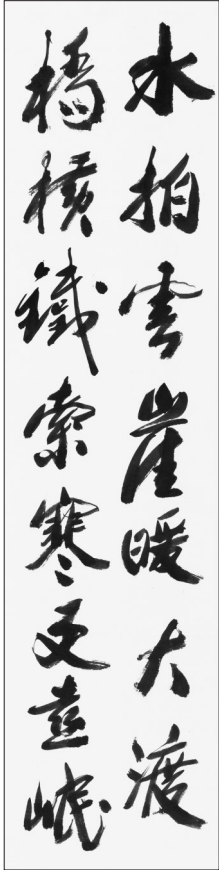 水拍雲崖暖大渡
橋橫鐵索寒更喜岷